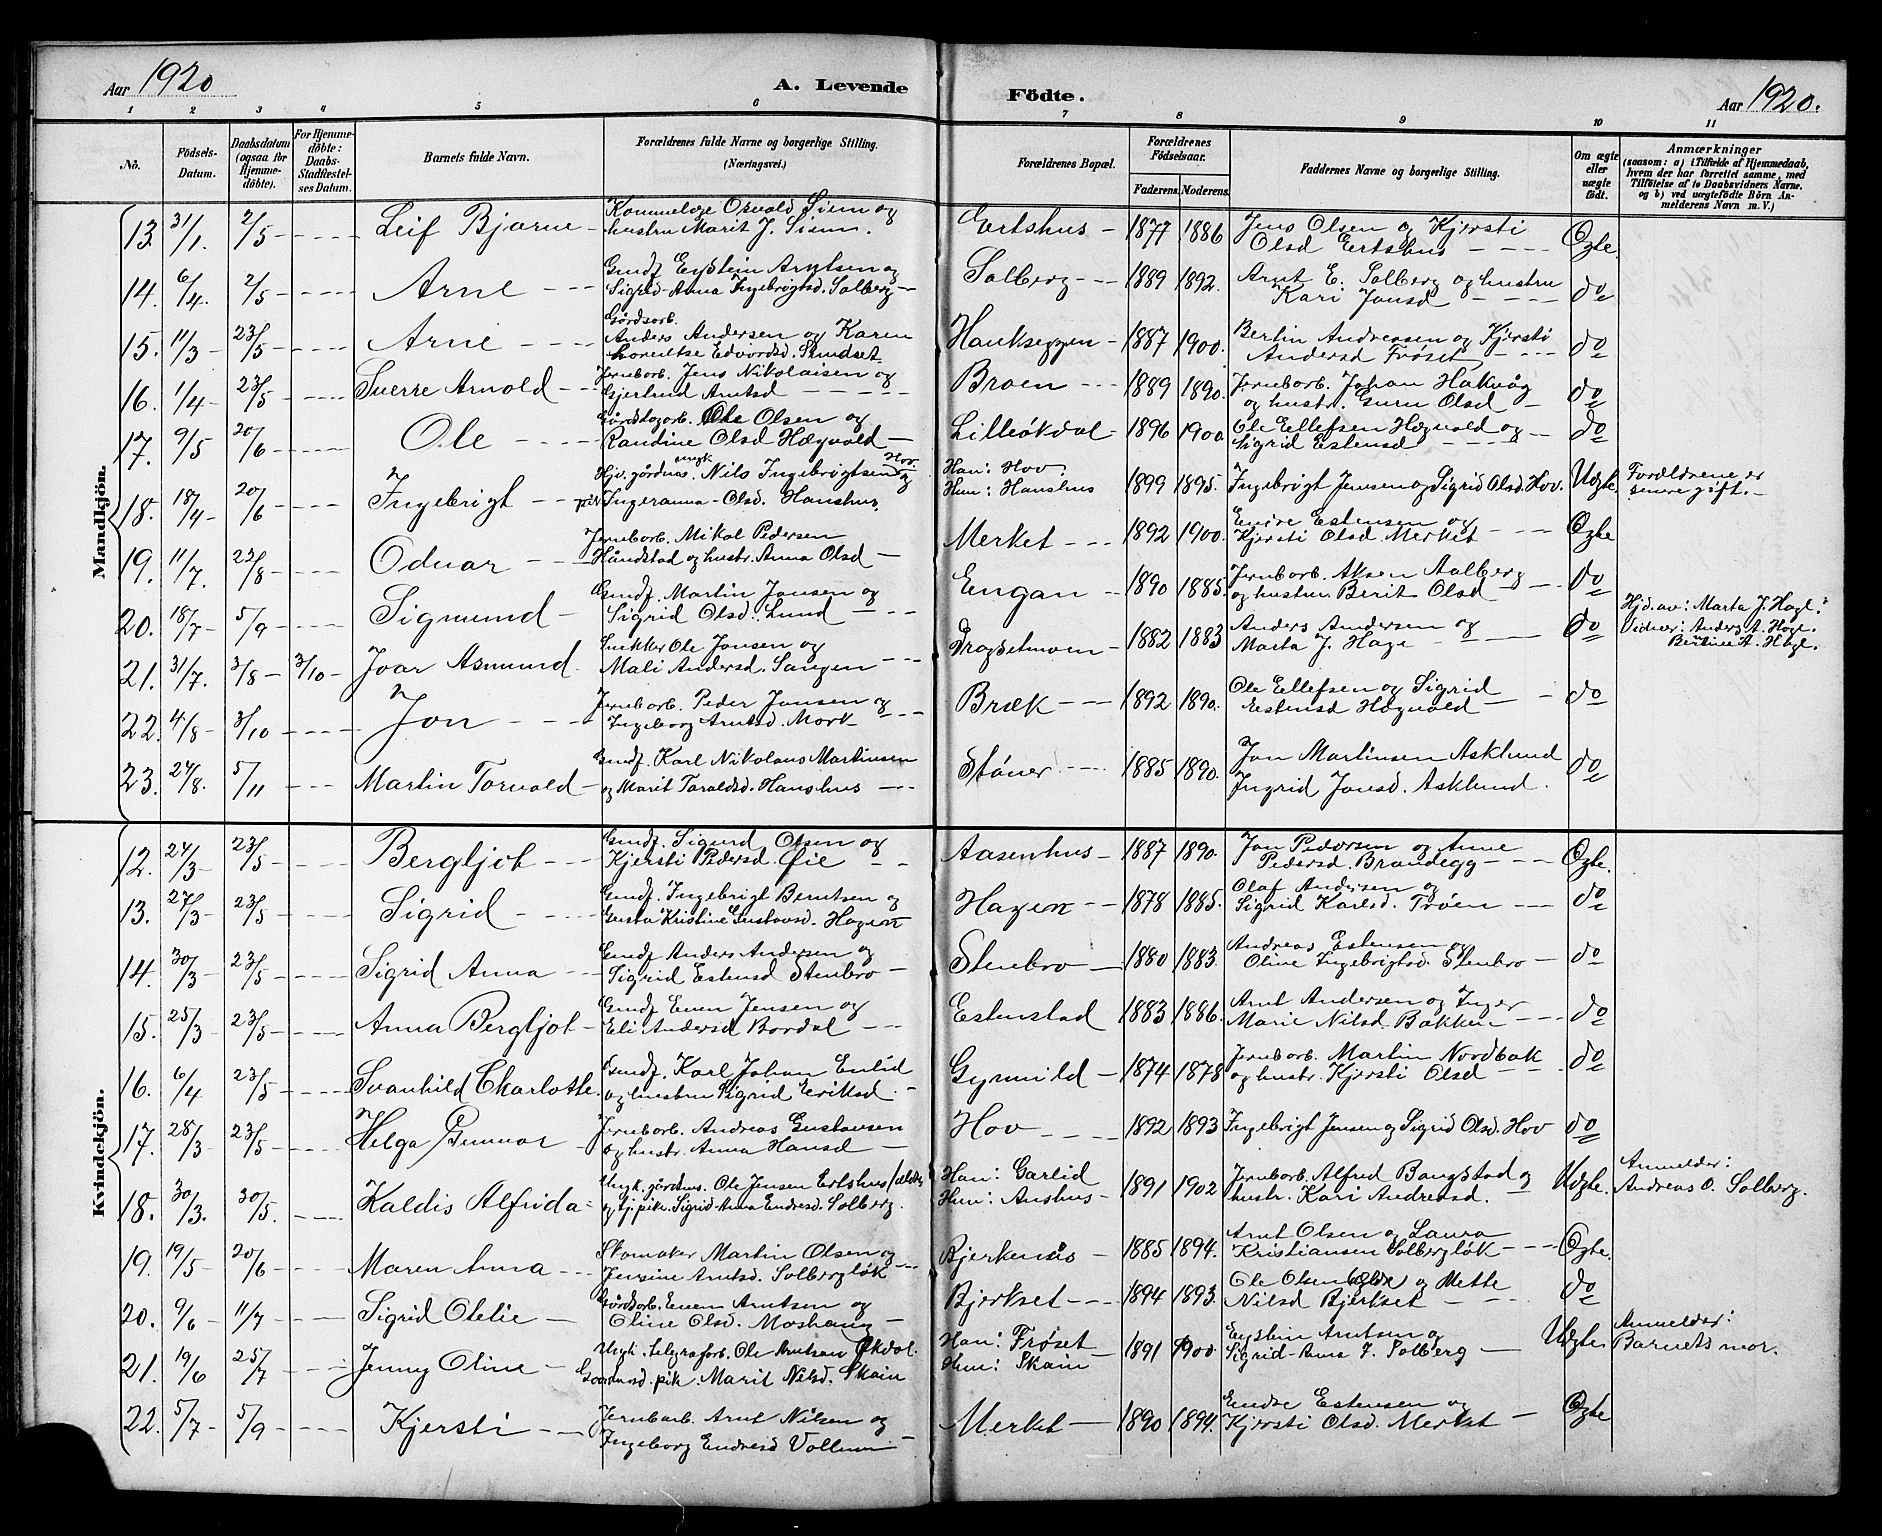 Aar 1920
A. Levende Födte.
Aar 1920.
1 2 3 4 5 6 7 8 9 10 11
No. Födsels-Datum. Daabsdatum (ogsaa for Hjemme-döbte). For Hjemme-döbte: Daabs-Stadfæstel-ses Datum. Barnets fulde Navn. Forældrenes fulde Navne og borgerlige Stilling. (Næringsvei.) Forældrenes Bopæl. Forældrenes Födselsaar. Faderens. Moderens. Faddernes Navne og borgerlige Stilling. Om ægte eller uægte födt. Anmærkninger (saasom: a) i Tilfælde af Hjemmedaab, hvem der har forrettet samme, med Tilföielse af to Daabsvidners Navne. og b) ved uægtefödte Börn An-melderens Navn m. V.)
Mandkjön.
13. 31/1. 2/5 Leif Bjarne Osvald Siem og hustru Marit J. Siem. Ertshus 1877 1886 Jens Olsen og Kjersti Olsd Ertshus Ægte.
14. 6/4. 2/5 Arne Gmdf Eystein Arntsen og Sigrid-Anna Ingebrigtsd. Solberg Solberg 1889 1892. Arnt E. Solberg og hustru Kari Jonsd do
15. 11/3 23/5 Arne Gårdsarb. Anders Andersen og Karen Lorentse Edvardsd. Skindset Haukseggen 1887 1900. Bertin Andreasen og Kjersti Andersd Frøset do
16. 1/4 23/5 Sverre Arnold Jernbarb. Jens Nikolaisen og Gjertrud Arntsd Broen 1889 1890. Jernbarb. Johan Hakvåg og hustr. Guru Olsd do
17. 9/5 20/6 Ole Ole Olsen og Randine Olsd Hægvold Lilleökdal 1896 1900 Ole Ellefsen Hægvold og Sigrid Estensd do
18. 18/4 20/6 Ingebrigt ungk Nils Ingebrigtsen Hov og pik Ingeranna Olsd. Hanshus, Han: Hov. Hun: Hanshus 1899 1895. Ingebrigt Jensen og Sigrid Olsd. Hov. Uægte. Forældrene er senere gift.
19. 11/7. 22/8 Odvar Jernbarb. Mikal Pedersen Håndstad og hustr. Anna Olsd Merket 1892 1900. Endre Estensen og Kjersti Olsd Merket Ægte
20. 18/7 5/9 Sigmund Gmdf Martin Jonsen og Sigrid Olsd. Lund Engan 1890 1885. Jernbarb. Aksen Aalberg og hustru Berit Olsd do
21. 31/7. 3/8 3/10 Joar Asmund. Snikker Ole Jonsen og Mali Andersd. Langen 1882 1883 Anders Andersen og Marta J. Hage do Hjd. av: Marta J. Hage. Vidner: Anders A. Hage.
22. 4/8 3/10 Jon Jernbarb. Peder Jonsen og Ingeborg Arntsd. Mork Bræk 1892 1890. Ole Ellefsen og Sigrid Estensd Hægvold do
23. 24/8. 5/11 Martin Torvald Gmdf. Karl Nikolaus Martinsen og Marit Taraldsd. Hanshus Støner 1885 1890. Jon Martinsen Asklund Ingrid Jonsd. Asklund. do
Kvindekjön.
12. 24/3 23/5 Bergljot Gmdf. Sigurd Olsen og Kjersti Pedersd. Øie Aasenhus 1887 1890. Jon Pedersen og Anne Pedersd. Brandegg Ægte.
13. 27/3 23/5 Sigrid Gmdf. Ingebrigt Berntsen og Gusta Kristine Gustavsd. Hagen Hagen 1878 1885. Olaf Andersen og Sigrid Karlsd. Trøen do
14. 30/3 23/5 Sigrid Anna Gmdf Anders Andersen og Sigrid Estensd Stenbro Stenbro 1880 1883. Andreas Estensen og Oline Ingebrigtsd. Stenbro do
15. 25/3 23/5 Anna Bergljot Gmdf Even Jensen og Eli Andersd Bordal Estenstad 1883 1886. Arnt Andersen og Inger Marie Nilsd Bakken do
16. 6/4 23/5 Svanhild Charlotte. Gmdf. Karl Johan Enlid og hustru Sigrid Eriksd Gynnild 1874 1878 Jernbarb. Martin Nordbak og hustr. Kjersti Olsd do
17. 28/3 23/5 Helga Gunvor Jernbarb. Andreas Gustavsen og hustr. Anna Hansd Hov 1892 1893 Ingebrigt Jensen og Sigrid Olsd. Hov do
18. 30/3. 30/5. Kaldis Alfrida Ungk. Ole Jensen Ertshus og pik. Sigrid-Anna Endresd. Solberg. Han: Garlid Hun: Aushus 1891 1902 Jernbarb. Alfred Bangstad og hustr. Kari Andreasd. Uægte. Anmelder: Andreas O. Solberg.
19. 19/5 20/6 Maren Anna Skomaker Martin Olsen og Jensine Arntsd. Solbergløk Bjerkenås 1885 1894. Arnt Olsen og Laura Kristiansen Solbergløk Ægte.
20. 9/6 11/7 Sigrid Otelie Gårdsarb. Even Arntsen og Oline Olsd. Moshaug Bjerkset 1894 1893. Ole Olsen (ældre) og Mette Nilsd Bjerkset do
21. 19/6 25/7 Jenny Oline Ungk. telegrafarb. Ole Arntsen Økdal pik. Marit Nilsd. Skain Han: Frøset Hun: Skain 1891 1900 Eystein Arntsen og Sigrid-Anna I. Solberg Uægte. Anmelder: Barnets mor.
22. 5/7 5/9 Kjersti Jernbarb. Arnt Nilsen og Ingeborg Endresd Vollum Merket 1890 1894. Endre Estensen og Kjersti Olsd. Merket Ægte